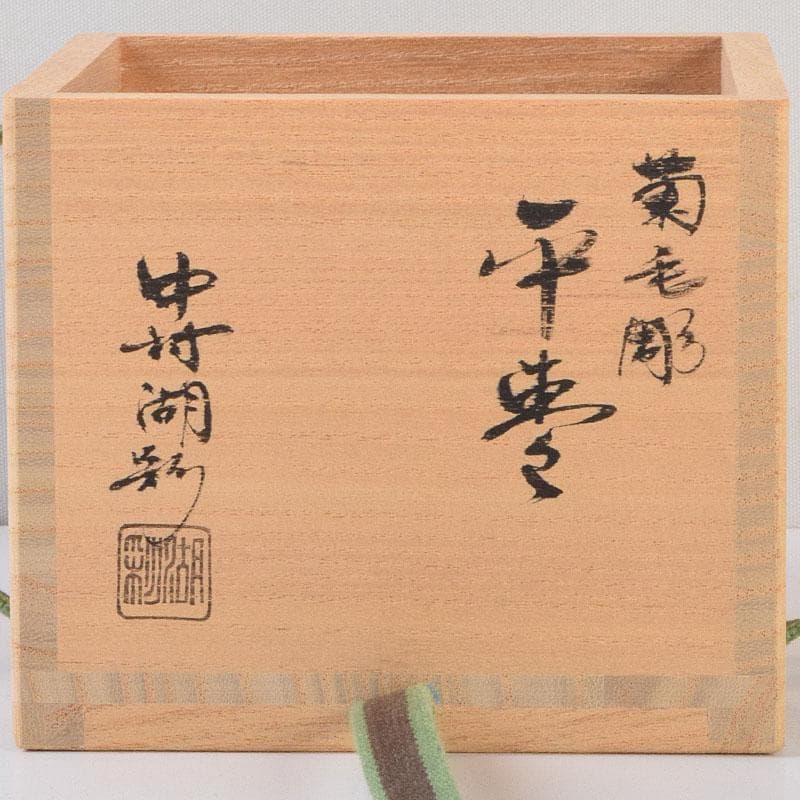 菊毛彫
平棗
中村湖彩
湖彩